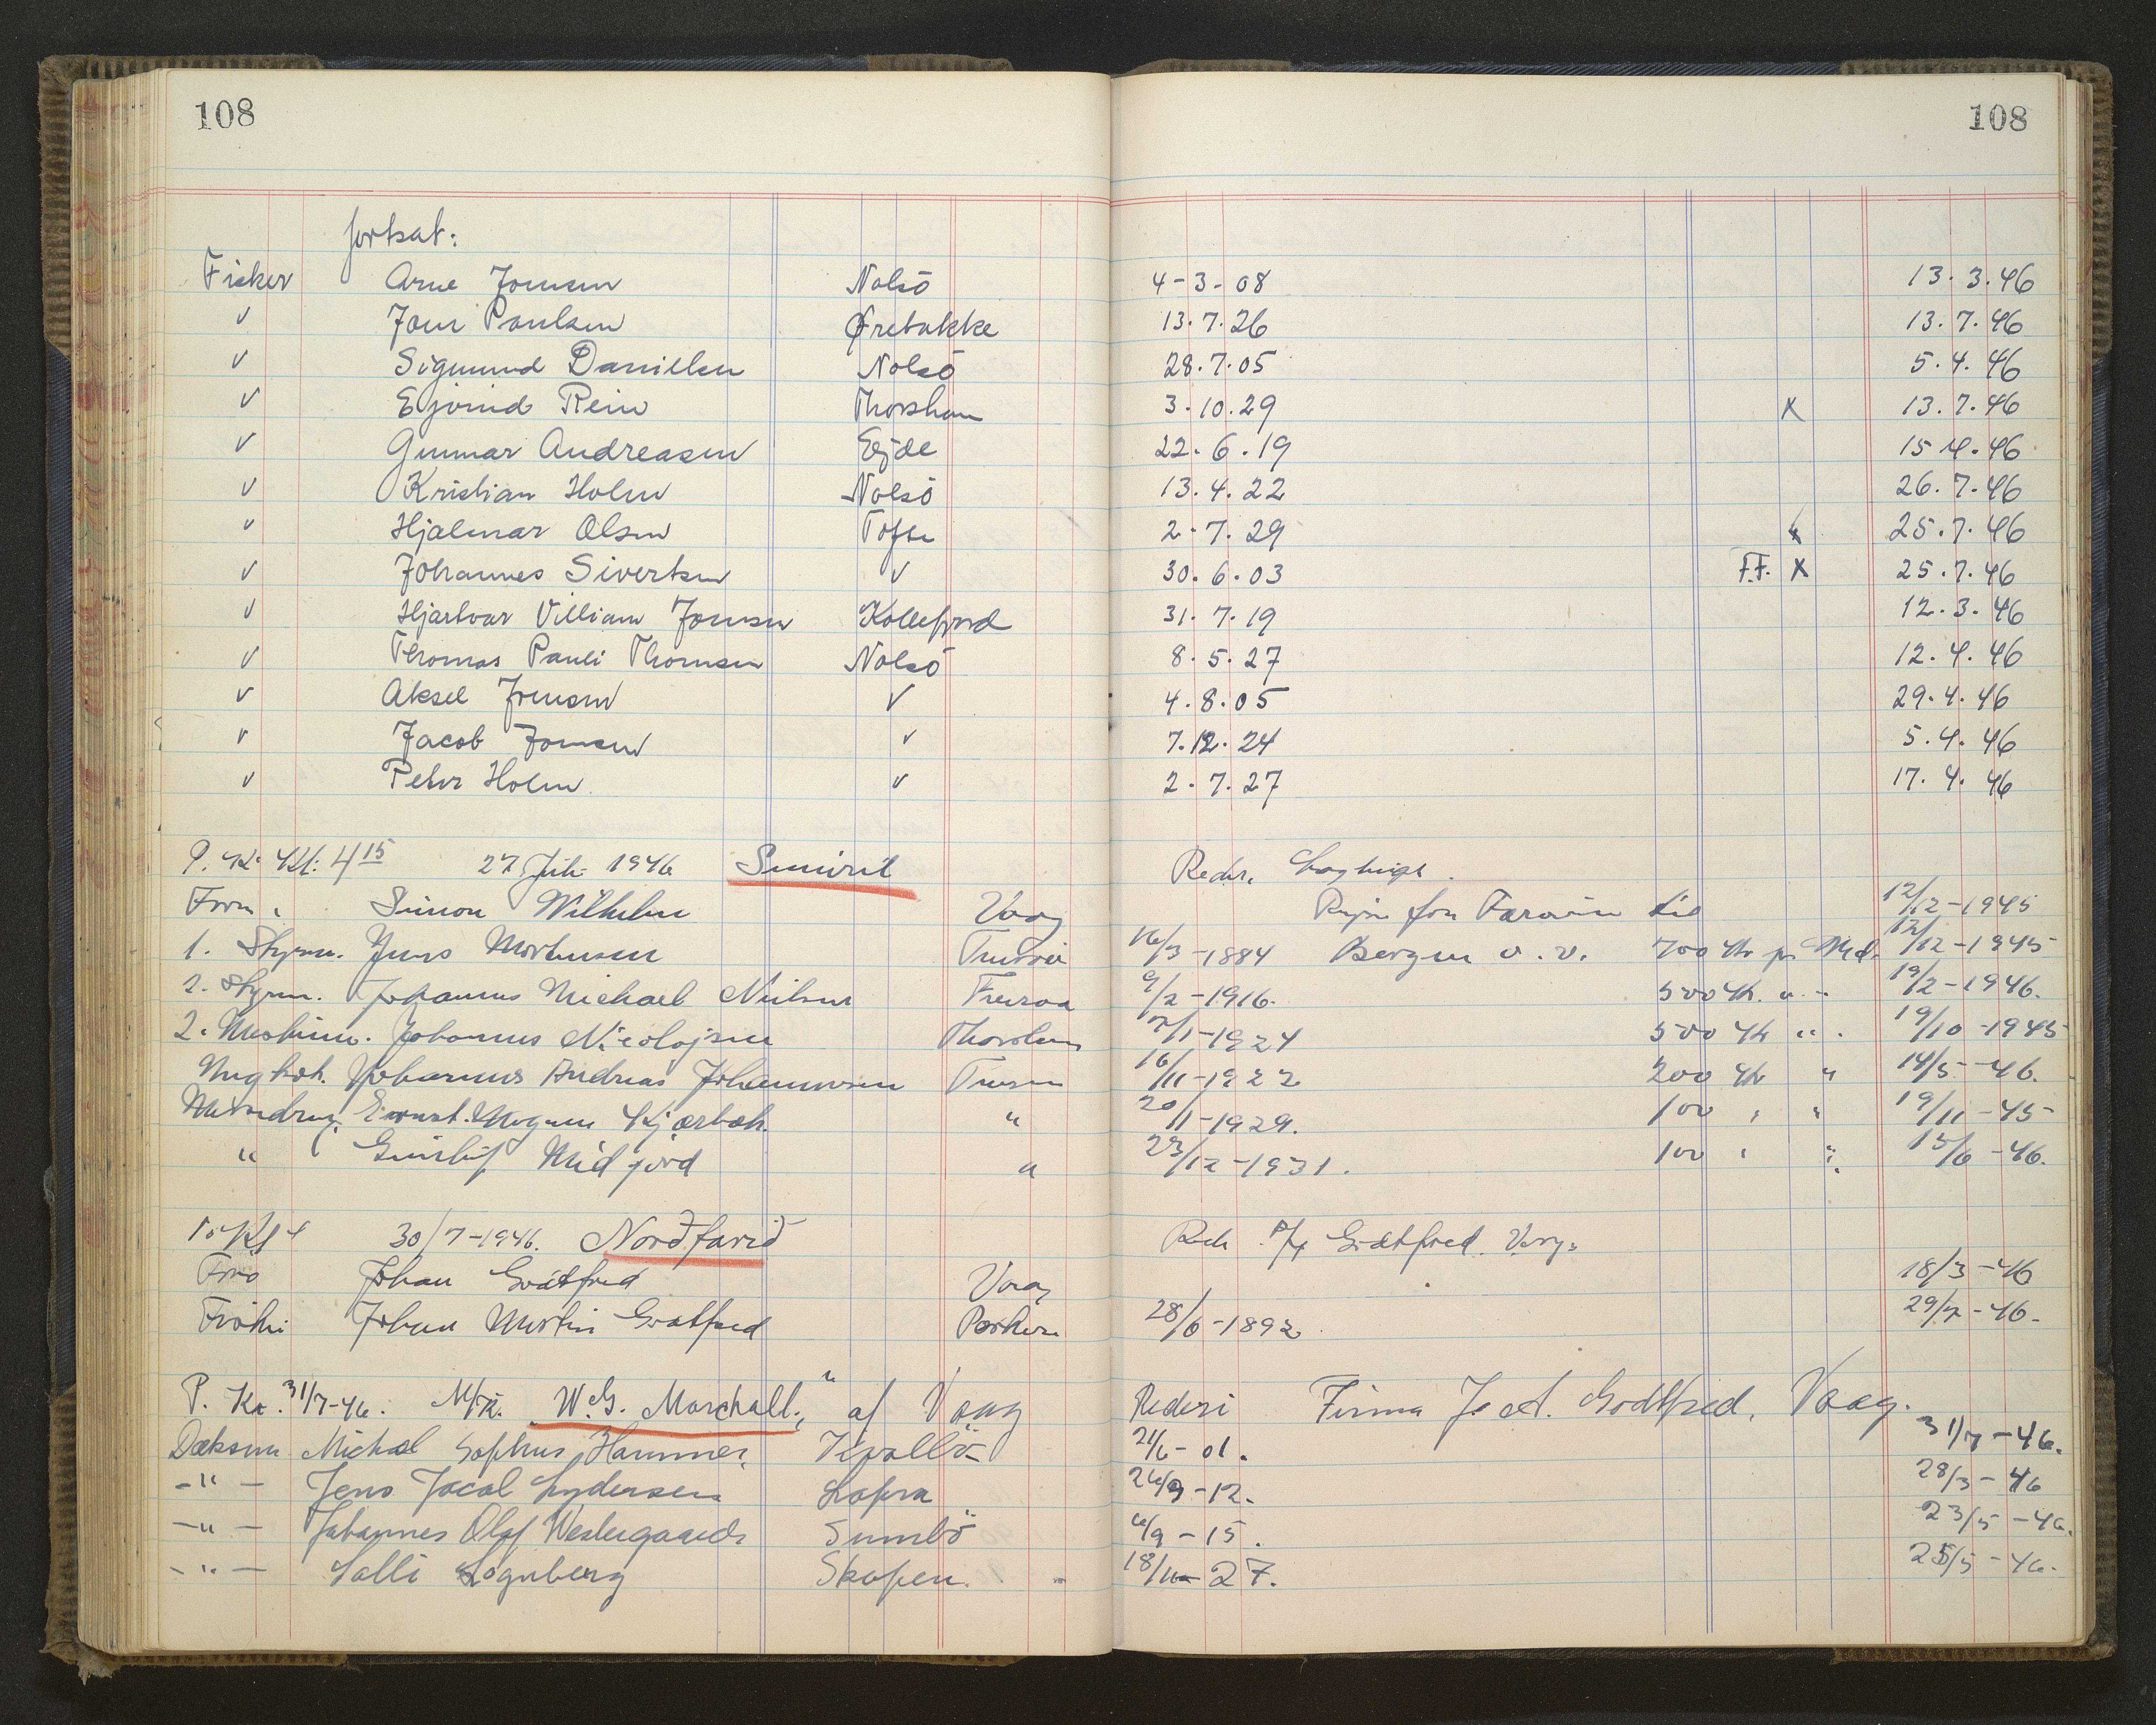 108 108
fortsat:
Fisker Arne Joensen Nolsö 4-3-08 13.3.46
v Joen Paulsen Ørebakke 13.7.26 13.7.46
v Sigmund Danielsen Nolsö 28.7.05 5.4.46
v Ejvind Rein Thorshavn 3.10.29 X 13.7.46
v Gunnar Andreasen Ejde 22.6.19 15.4.46
v Kristian Holm Nolsö 13.4.22 26.7.46
v Hjalmar Olsen Tofte 2.7.29 x 25.7.46
v Johannes Sivertsen v 30.6.03 F.F. X 25.7.46
v Hjartvar Villiam Joensen Kollefjord 31.7.19 12.3.46
v Thomas Pauli Thomsen Nolsö 8.5.27 12.4.46
v Aksel Joensen v 4.8.05 29.4.46
v Jacob Joensen v 7.12.24 5.4.46
v Peter Holm v 2.7.27 17.4.46
P. K. Kl: 4 15 27 Juli 1946 Smiril Reder.
Form. Simon Wilhelm Vaag Rejse fra Færøerne til 12/12-1945
1. Styrm. Jens Mortensen 16/3-1884 Bergen o.v. 700 Kr pr Md. 12/12-1945
2. Styrm. Johannes Michael Nielsen 9/2-1916. 500 Kr. " - 19/2-1946.
2. Maskinm. Johannes Nicolajsen Thorshavn 7/1-1924 500 Kr " . 19/10-1945
Johannes Andreas Johannesen 16/11-1922 200 Kr " 14/5-46.
Ernst Magnus Kjærbæk " 20/1-1929. 100 " " 19/11-45
" Midjord " 23/12-1931. 100 " " 15/6-46.
30/7-1946. Nordfarid Rede P/f Godtfred. Vaag.
Johan Godtfred Vaag 18/3-46
Johan Martin Godtfred Porkere 28/6-1892 29/7-46.
P. Kr. 31/7-46. M/Sk. "W.G. Marchall." af Vaag Rederi Firma J. A. Godtfred. Vaag.
Dæksm Michal Sophus Hammer, Kvalbö 21/6-01. 31/7-46.
-"- Jens Jacob Lydersen Lopra 26/9-12. 28/3-46
-"- Johannes Olaf Westergaard Sumbö 6/9-15. 23/5-46.
-"- Lognberg Skopen. 18/11-27. 25/5-46.